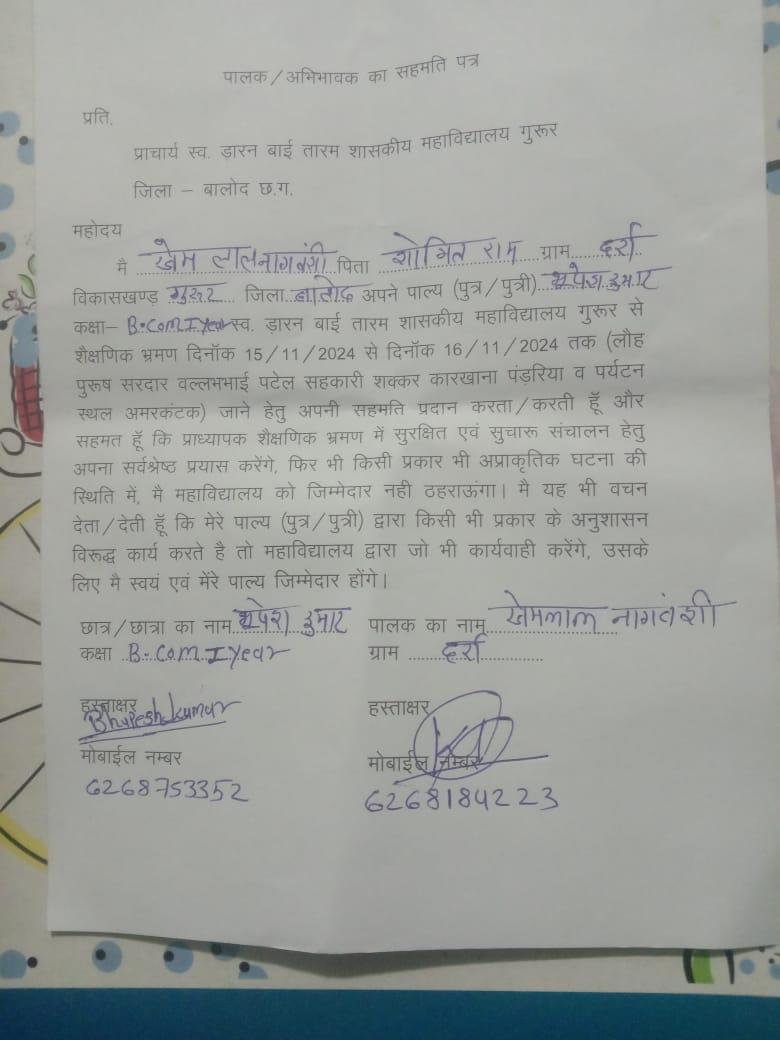 पालक/अभिभावक का सहमति पत्र
प्रति,
प्राचार्य स्व. डारन बाई तारम शासकीय महाविद्यालय गुरूर
जिला – बालोद छ.ग.
महोदय
मै खेम लाल नागवंशी पिता शोभित राम ग्राम दर्रा
विकासखण्ड गुरूर जिला बालोद अपने पाल्य (पुत्र/पुत्री) भूपेश कुमार
कक्षा– B.Com I year स्व. डारन बाई तारम शासकीय महाविद्यालय गुरूर से
शैक्षणिक भ्रमण दिनॉक 15/11/2024 से दिनॉक 16/11/2024 तक (लौह
पुरूष सरदार वल्लभभाई पटेल सहकारी शक्कर कारखाना पंड़रिया व पर्यटन
स्थल अमरकंटक) जाने हेतु अपनी सहमति प्रदान करता/करती हूँ और
सहमत हूँ कि प्राध्यापक शैक्षणिक भ्रमण में सुरक्षित एवं सुचारू संचालन हेतु
अपना सर्वश्रेष्ठ प्रयास करेंगे, फिर भी किसी प्रकार भी अप्राकृतिक घटना की
स्थिति में, मै महाविद्यालय को जिम्मेदार नही ठहराऊंगा। मै यह भी वचन
देता/देती हूँ कि मेरे पाल्य (पुत्र/पुत्री) द्वारा किसी भी प्रकार के अनुशासन
विरूद्ध कार्य करते है तो महाविद्यालय द्वारा जो भी कार्यवाही करेंगे, उसके
लिए मै स्वयं एवं मेंरे पाल्य जिम्मेदार होंगे।
छात्र/छात्रा का नाम भूपेश कुमार पालक का नाम खेमलाल नागवंशी
कक्षा B.Com I year ग्राम दर्रा
हस्ताक्षर हस्ताक्षर
Bhupesh kumar
मोबाईल नम्बर मोबाईल नम्बर
6268753352 6268184223